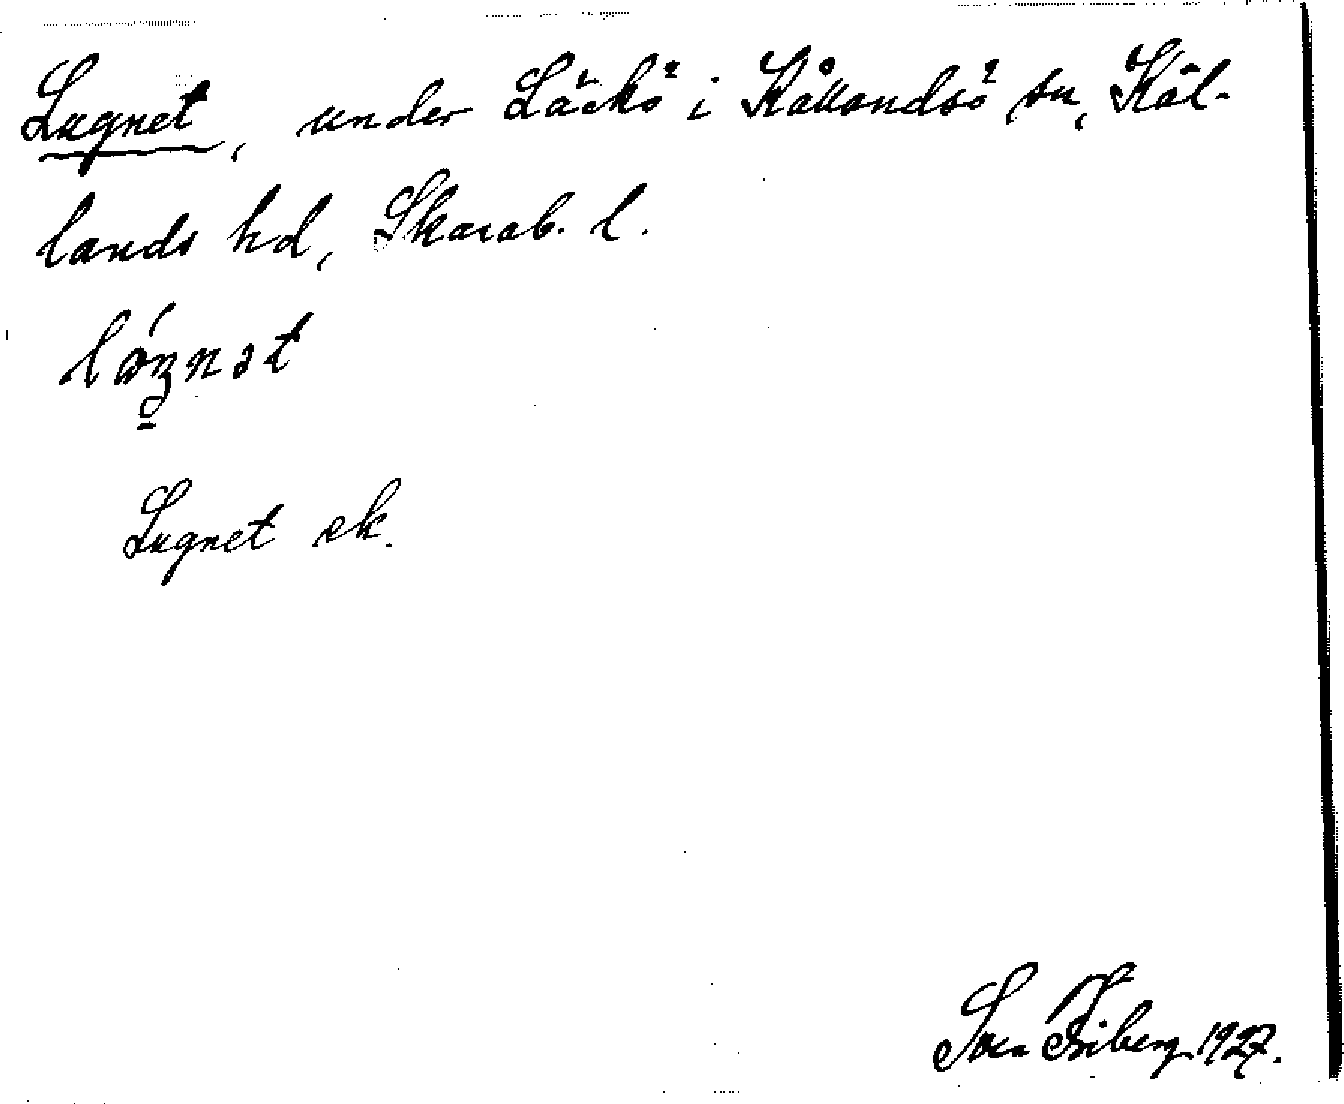 Lugnet, under Läckö i Kållandsö sn, Kål-
lands hd, Skarab. l.
Lugnet ek.
Sven Friberg 1927.